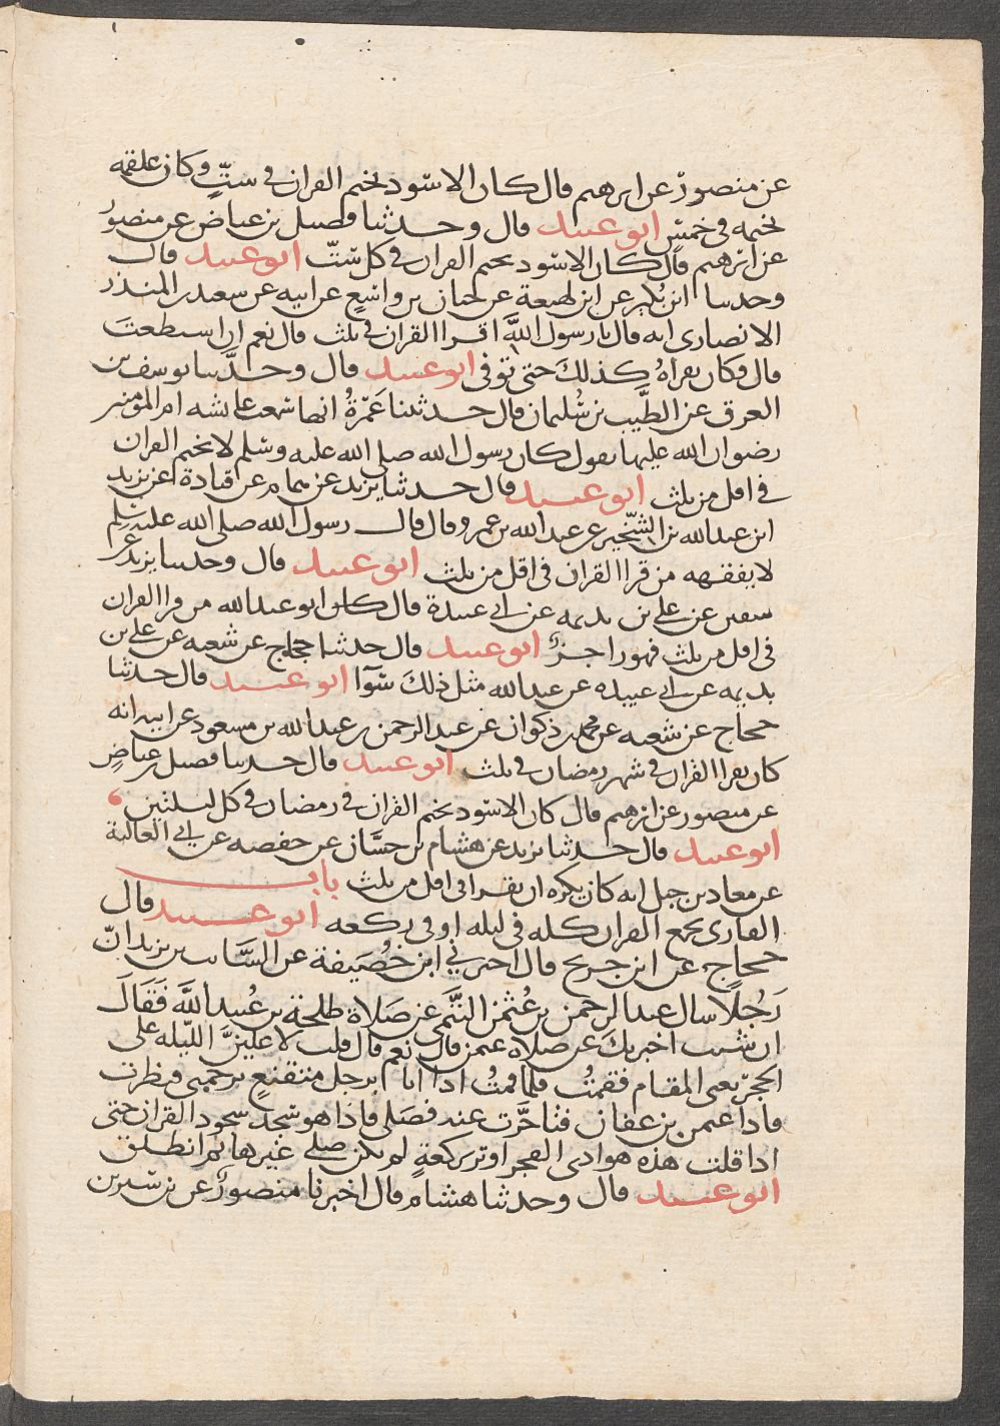 عن منصور عن ابرهيم قال كان الاسود يختم القران في ستٍّ وكان علقمه
يختمه في خمسٍ ابو عبيد قال وحدثنا فضيل بن عياض عن منصور
عن ابرهيم قال كان الاسود يختم القران في كل ستّ ابو عبيد قال
وحدثنا ابن بُكير عن ابن لهيعة عن حبان بن واسِعٍ عن ابيه عن سعد بن المنذر
الانصاري انه قال يا رسول اللَّه اقرا القران في ثلث قال نعم ان استطعتَ
قال فكان يقراهُ كذلكَ حتى توفى ابو عبيد قال وحدَّثنا يوسف بن
العرق عن الطَّيب بن سُليمان قال حدثتنا عَمْرَةُ انها سمعت عايشه ام المومنين
رضوان الله عليها تقول كان رسول الله صلى الله عليه وسلم لا يختم القران
في اقل من ثلث ابو عبيد قال حدثنا يزيد عن همام عن قتادة عن يزيد
ابن عبدالله بن الشِّخّير عن عبدالله بن عمرو قال قال رسول الله صلى الله عليه وسلم
لا يفقهه من قرا القران في اقل من ثلث ابو عبيد قال وحدثنا يزيد عن
سفين عن علي بن بذيمه عن ابي عبيدة قال كان ابو عبدالله من قرا القران
في اقل من ثلث فهو راجزٌ ابو عبيد قال حدثنا حجاج عن شعبه عن علي بن
بذيمه عن ابي عبيده عن عبدالله مثل ذلكَ سَوآ ابو عبيد قال حدثنا
حجاج عن شعبه عن محمد بن ذكوان عن عبدالرحمن بن عبدالله بن مسعود عن ابيه انه
كان يقرا القران في شهر رمضان في ثلث ابو عبيد قال حدثنا فضيل بن عياضٍ
عن منصور عن ابرهيم قال كان الاسود يختم القران في رمضان في كل ليلتين
ابو عبيد قال حدثنا يزيد عن هشام بن حسَّان عن حفصه عن ابي العالية
عن معاذ بن جبل انه كان يكره ان يقرا في اقل من ثلث باب
القاري يجمع القران كله في ليله او في ركعه ابو عبيد قال
حجاج عن ابن جريج قال اخبرني ابن خُصَيفة عن السَّايب بن يزيد انّ
رَجُلًا سال عبدالرحمن بن عُثمن التَّيمي عن صَلاة طلحة بن عُبيدالله فَقَالَ
ان شيت اخبرتكَ عن صلاة عثمن قال نعم قال قلت لاغلبنَّ الليله على
الحجرّ يعني المقام فقمتُ فلما قمتُ اذا انا برجل متقنعٍ يزحمني فنظرت
فاذا عثمن بن عفان فتاخَّرت عنه فصَلى فاذا هو سجد سجود القران حتى
اذا قلت هذه هوادي الفجر اوتر بركعةٍ لم يكن صلى غيرها ثم انطلق
ابو عبيد قال وحدثنا هشام قال اخبرنا منصورٌ عن بن سيرين